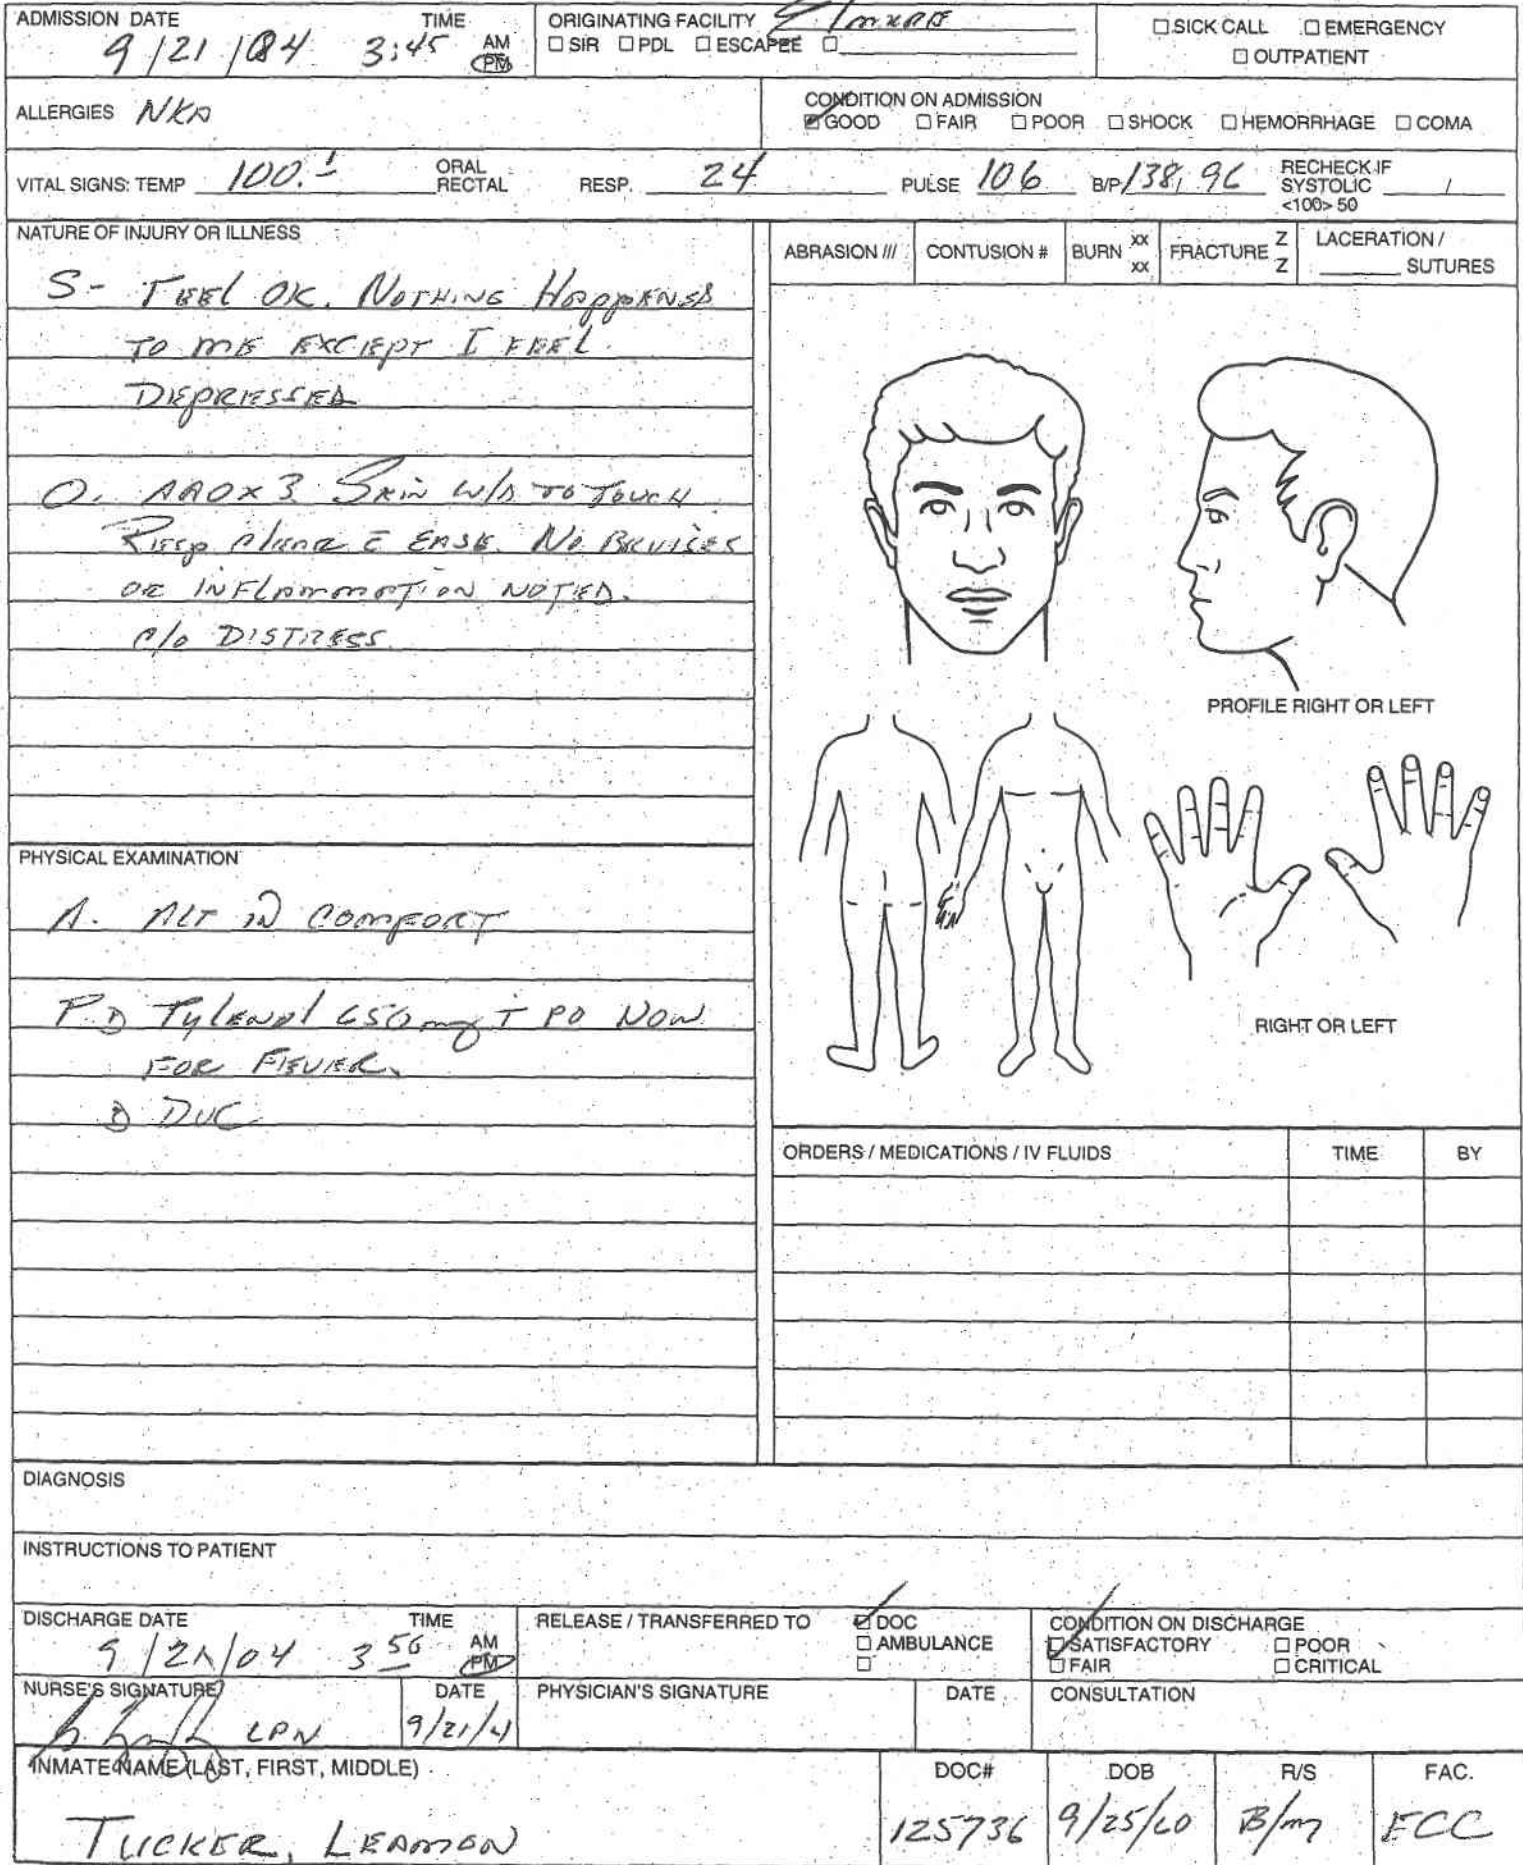 ADMISSION DATE TIME
9/21/04 3:45 AM PM
ORIGINATING FACILITY Elmore
☐ SIR ☐ PDL ☐ ESCAPEE ☐
☐ SICK CALL ☐ EMERGENCY
☐ OUTPATIENT
ALLERGIES NKA
CONDITION ON ADMISSION
☑ GOOD ☐ FAIR ☐ POOR ☐ SHOCK ☐ HEMORRHAGE ☐ COMA
VITAL SIGNS: TEMP 100.1 ORAL RECTAL RESP. 24 PULSE 106 B/P 138/96 RECHECK IF SYSTOLIC / <100> 50
NATURE OF INJURY OR ILLNESS
S- I FEEL OK. NOTHING HAPPENED
TO ME EXCEPT I FEEL
DEPRESSED
O. AAOX3 SKIN W/D TO TOUCH
RESP c̄ EASE. NO BRUISES
OR INFLAMMATION NOTED.
DISTRESS
ABRASION /// CONTUSION # BURN XX XX FRACTURE Z Z LACERATION / SUTURES
PROFILE RIGHT OR LEFT
RIGHT OR LEFT
PHYSICAL EXAMINATION
A. ALT IN COMFORT
P. TYLENOL 650mg PO NOW
FOR FEVER.
ORDERS / MEDICATIONS / IV FLUIDS TIME BY
DIAGNOSIS
INSTRUCTIONS TO PATIENT
DISCHARGE DATE TIME
9/21/04 3 50 AM PM
RELEASE / TRANSFERRED TO ☑ DOC
☐ AMBULANCE
☐
CONDITION ON DISCHARGE
☑ SATISFACTORY ☐ POOR
☐ FAIR ☐ CRITICAL
NURSE'S SIGNATURE DATE PHYSICIAN'S SIGNATURE DATE CONSULTATION
LPN 9/21/4
INMATE NAME (LAST, FIRST, MIDDLE) DOC# DOB R/S FAC.
TUCKER, LEAMON 125736 9/25/60 B/m ECC